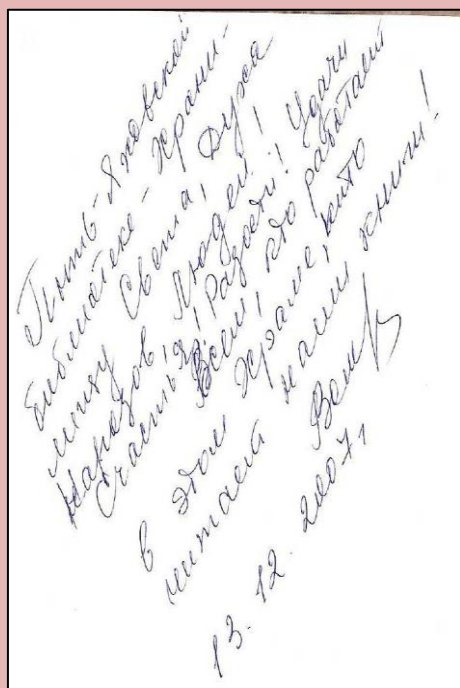 Пыть-Яховской
библиотеке - Храни-
лищу Света, Духа
Народов, Людей!
Счастья! Радости! Удачи
Всем, кто работает
в этом Храме, кто
читает наши книги!
13.12.2007г